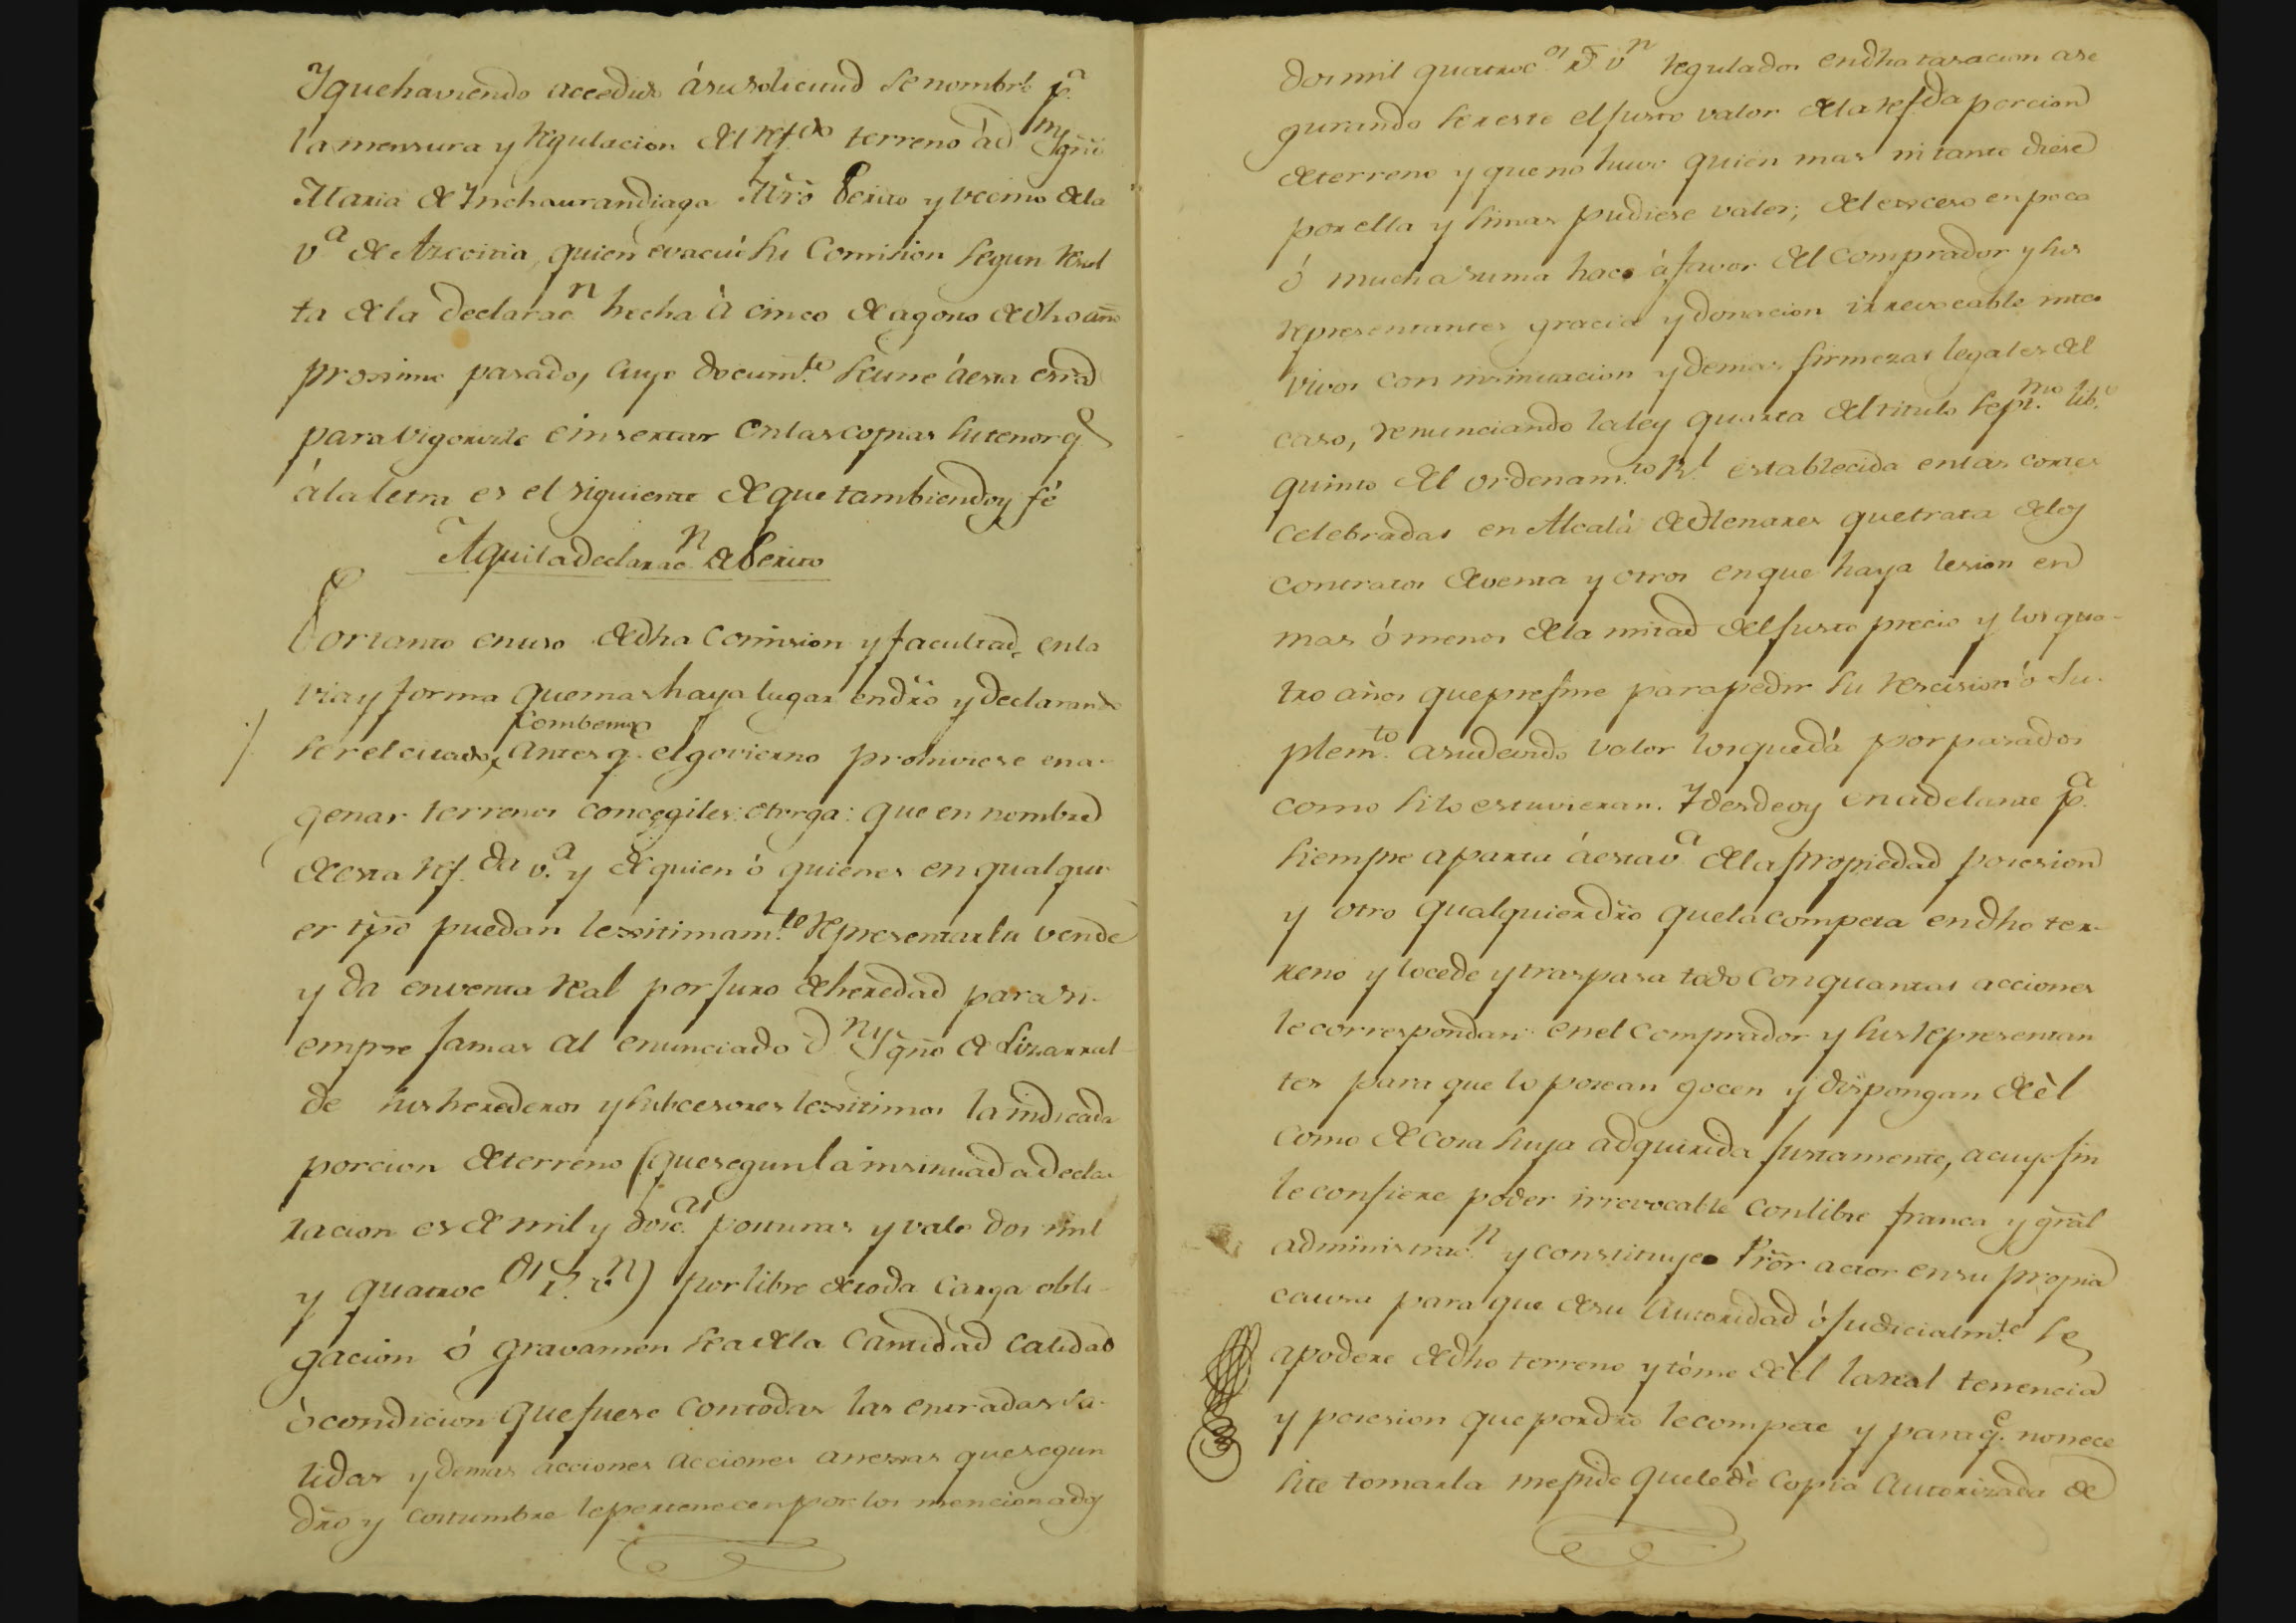 Y que haviendo accedido á su solicitud se nombró p.ª
la mensura y regulacion del ref.do terreno á D.n Ygñō
Maria de Ynchaurandiaga Mrō Perito y vecino de la
v.ª de Azcoitia, quien evacuó su Comision segun resul
ta de la declarac.n hecha á cinco de agosto de dho año
proximo pasado, cuyo docum.to se une á esta esrã
para vigorizarle e insertar en las copias su tenor q.
á la letra es el siguiente de que tambien doy fé
Aqui la declarac.n de Perito
Por tanto en uso de dha Comision y facultad, en la
via y forma que mas haya lugar en drō y declarando
Combenio
ser el citado, antes q. el govierno prohiviese ena-
genar terrenos concegiles: otorga: que en nombre
de esta ref.da v.ª y de quien ó quienes en qualqui-
er tpō puedan lexitimam.te representarla vende
y da en venta real por juro de heredad para si-
empre jamas al enunciado D.n Ygño de Lizarral-
de sus herederos y subcesores lexitimos la indicada
porcion de terreno (que segun la insinuada decla-
racion es de mil y doic.as posturas y vale dos mil
y quatroc.os r.s v.n) por libre de toda carga obli-
gacion ó gravamen sea de la cantidad calidad
ó condicion que fuese con todas las entradas sa-
lidas y demas acciones acciones anexas que segun
drō y costumbre le pertenecen por los mencionados
dos mil quatroc.os r.s v.n regulados en dha tasacion ase
gurando ser este el justo valor de la ref.da porcion
de terreno y que no huvo quien mas ni tanto diese
por ella y si mas pudiese valer; del exceso en poca
ó mucha suma hace á favor del comprador y sus
representantes gracia y donacion irrevocable inter
vivos con insinuacion y demas firmezas legales del
caso, renunciando la ley quarta del titulo sept.mo lib.o
quinto del ordenam.to R.l establecida en las cortes
celebradas en Alcalá de Henares que trata de los
contratos de venta y otros en que haya lesion en
mas ó menos de la mitad del justo precio y los qua-
tro años que prefine para pedir su rescision ó su-
plem.to a su devido valor los que dá por pasados
como si lo estuvieran. Y desde oy en adelante p.ª
siempre aparta á esta v.ª de la propiedad posesion
y otro qualquier drō que la competa en dho ter-
reno y lo cede y traspasa todo con quantas acciones
le correspondan en el comprador y sus representan
tes para que lo posean gocen y dispongan de èl
como de cosa suya adquirida justamente, a cuyo fin
le confiere poder irrevocable con libre franca y grãl
administrac.n y constituye Prõr actor en su propia
causa para que de su autoridad ó judicialm.te se
apodere de dho terreno y tóme de èl la real tenencia
y posesion que por drō le compete y para q.e no nece
site tomarla me pide que le dè copia autorizada de